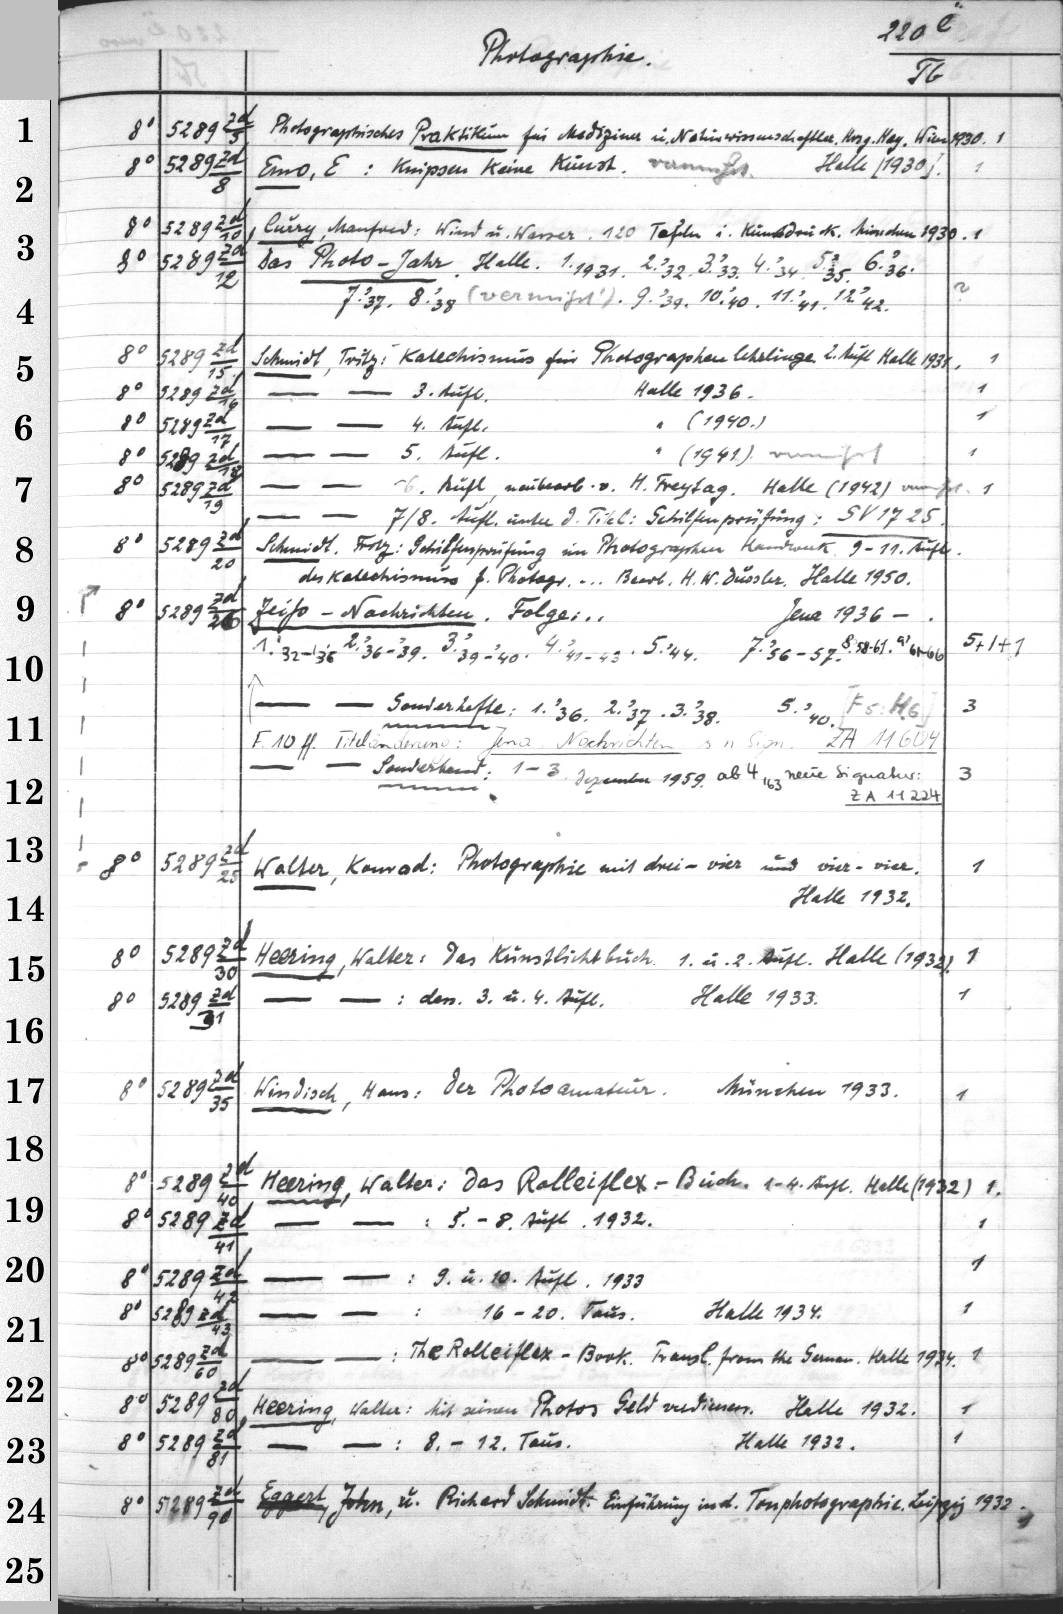 220 e
Photographie. Tb
1 8° 5289 Zd/5 Photographisches Praktikum für Mediziner u. Naturwissenschaftler. Hrsg. Hay. Wien 1930. 1
8° 5289 Zd/8 Emo, E : Knipsen keine Kunst. vermißt. Halle [1930]. 1
2
8° 5289 Zd/10 Curry, Manfred: Wind u. Wasser. 120 Tafeln i. Kunstdruck. München 1930. 1
3 8° 5289 Zd/12 Das Photo-Jahr. Halle. 1.1931. 2.'32. 3.'33. 4.'34. 5.'35. 6.'36.
4 7.'37. 8.'38 (vermißt!). 9.'39. 10.'40. 11.'41. 12.'42. ?
5 8° 5289 Zd/15 Schmidt, Fritz: Katechismus für Photographenlehrlinge 2. Aufl Halle 1931. 1
8° 5289 Zd/16 — — 3. Aufl. Halle 1936. 1
6 8° 5289 Zd/17 — — 4. Aufl. " (1940.) 1
8° 5289 Zd/18 — — 5. Aufl. " (1941.) vermißt 1
7 8° 5289 Zd/19 — — 6. Aufl, neubearb. v. H. Freytag. Halle (1942) 1
— — 7/8. Aufl. unter d. Titel: Gehilfenprüfung: SV 1725.
8 8° 5289 Zd/20 Schmidt, Fritz: Gehilfenprüfung im Photographen Handwerk. 9-11. Aufl.
des Katechismus f. Photogr. ... Bearb. H. W. Düssler. Halle 1950.
9 8° 5289 Zd/26 Zeiss-Nachrichten. Folge: .. Jena 1936 — .
10 1.'32-'36 2.'36-'39. 3.'39-'40. 4.'41-43. 5.'44. 7.'56-57. 8.'58-61. 9.'61-66 5+1+1
11 — — Sonderhefte: 1.'36. 2.'37. 3.'38. 5.'40. [F 5: H6] 3
F. 10 ff. Titeländerung: Jena. Nachrichten s. n. Sign. ZA 11604
— — Sonderband: 1-3. Dezember 1959. ab 4,'63 neue Signatur: 3
12 ZA 11224
13 8° 5289 Zd/25 Walter, Konrad: Photographie mit drei-vier und vier-vier. 1
14 Halle 1932.
15 8° 5289 Zd/30 Heering, Walter: Das Kunstlichtbuch. 1. u. 2. Aufl. Halle (1932). 1
8° 5289 Zd/31 — — : dass. 3. u. 4. Aufl. Halle 1933. 1
16
17 8° 5289 Zd/35 Windisch, Hans: Der Photoamateur. München 1933. 1
18
8° 5289 Zd/40 Heering, Walter: Das Rolleiflex-Buch. 1-4. Aufl. Halle (1932) 1.
19 8° 5289 Zd/41 — — : 5.-8. Aufl. 1932. 1
20 8° 5289 Zd/42 — — : 9. u. 10. Aufl. 1933 1
21 8° 5289 Zd/43 — — : 16-20. Taus. Halle 1934. 1
8° 5289 Zd/60 — — : The Rolleiflex-Book. Transl. from the German. Halle 1934. 1
22 8° 5289 Zd/80 Heering, Walter: Mit seinen Photos Geld verdienen. Halle 1932. 1
23 8° 5289 Zd/81 — — : 8.-12. Taus. Halle 1932. 1
24 8° 5289 Zd/90 Eggert, John, u. Richard Schmidt. Einführung in d. Tonphotographie. Leipzig 1932. 1
25